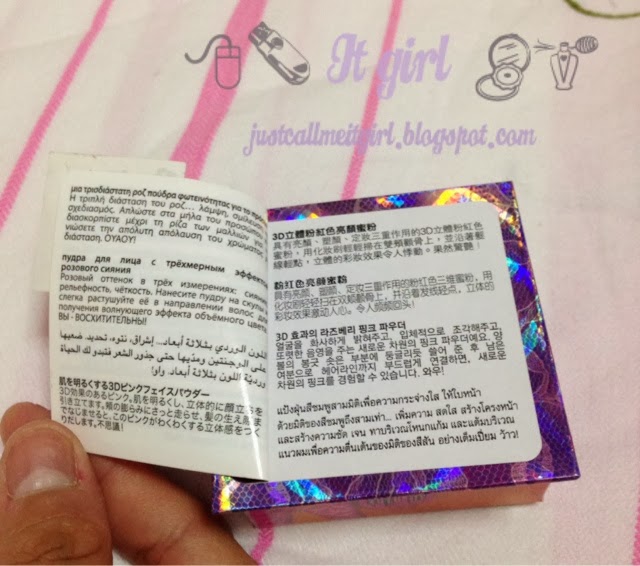 It girl
justcallmeitgirl.blogspot.com
μια τρισδιάστατη ροζ πούδρα φωτεινότητας για το
Η τριπλή διάσταση του ροζ... λάμψη,
σχεδιασμός. Απλώστε στα μήλα του προσώπου
διασκορπίστε μέχρι τη ρίζα των μαλλιών για
νιώσετε την απόλυτη απόλαυση του χρώματος
διάσταση. ΟΥΑΟΥ!
пудра для лица с трёхмерным эффектом
розового сияния
Розовый оттенок в трёх измерениях: сияние,
рельефность, чёткость. Нанесите пудру на скулы и
слегка растушуйте её в направлении волос для
получения волнующего эффекта объёмного цвета.
ВЫ - ВОСХИТИТЕЛЬНЫ!
اللون الوردي بثلاثة أبعاد... إشراق، نتوء، تحديد. ضعيها
على الوجنتين ومديها حتى جذور الشعر فتبدو لك الحياة
وردية اللون بثلاثة أبعاد. واو!
肌を明るくする3Dピンクフェイスパウダー
3D効果のあるピンク。肌を明るくし、立体的に顔立ちを
引き立てます。頬の膨らみにさっと走らせ、髪の生え際ま
でなじませると、このピンクがわくわくする立体感をつく
りだします。不思議!
3D立體粉紅色亮顏蜜粉
具有亮顏、塑顏、定妝三重作用的3D立體粉紅色
蜜粉，用化妝刷輕輕掃在雙頰顴骨上，並沿著髮
線輕點，立體的彩妝效果令人悸動。果然驚艷！
粉红色亮颜蜜粉
具有亮颜、塑颜、定妆三重作用的粉红色三维蜜粉，用
化妆刷轻轻扫在双颊颧骨上，并沿着发线轻点，立体的
彩妆效果激动人心。令人频频回头！
3D 효과의 라즈베리 핑크 파우더
얼굴을 화사하게 밝혀주고, 입체적으로 조각해주고,
또렷한 음영을 주는 새로운 차원의 핑크 파우더예요. 양
볼의 봉긋 솟은 부분에 동글리듯 쓸어 준 후 남은
여분으로 헤어라인까지 부드럽게 연결하면, 새로운
차원의 핑크를 경험할 수 있습니다. 와우!
แป้งฝุ่นสีชมพูสามมิติเพื่อความกระจ่างใส ให้ใบหน้า
ด้วยมิติของสีชมพูถึงสามเท่า... เพิ่มความ สดใส สร้างโครงหน้า
และสร้างความชัด เจน ทาบริเวณโหนกแก้ม และแต้มบริเวณ
แนวผมเพื่อความตื่นเต้นของมิติของสีสัน อย่างเต็มเปี่ยม ว้าว!